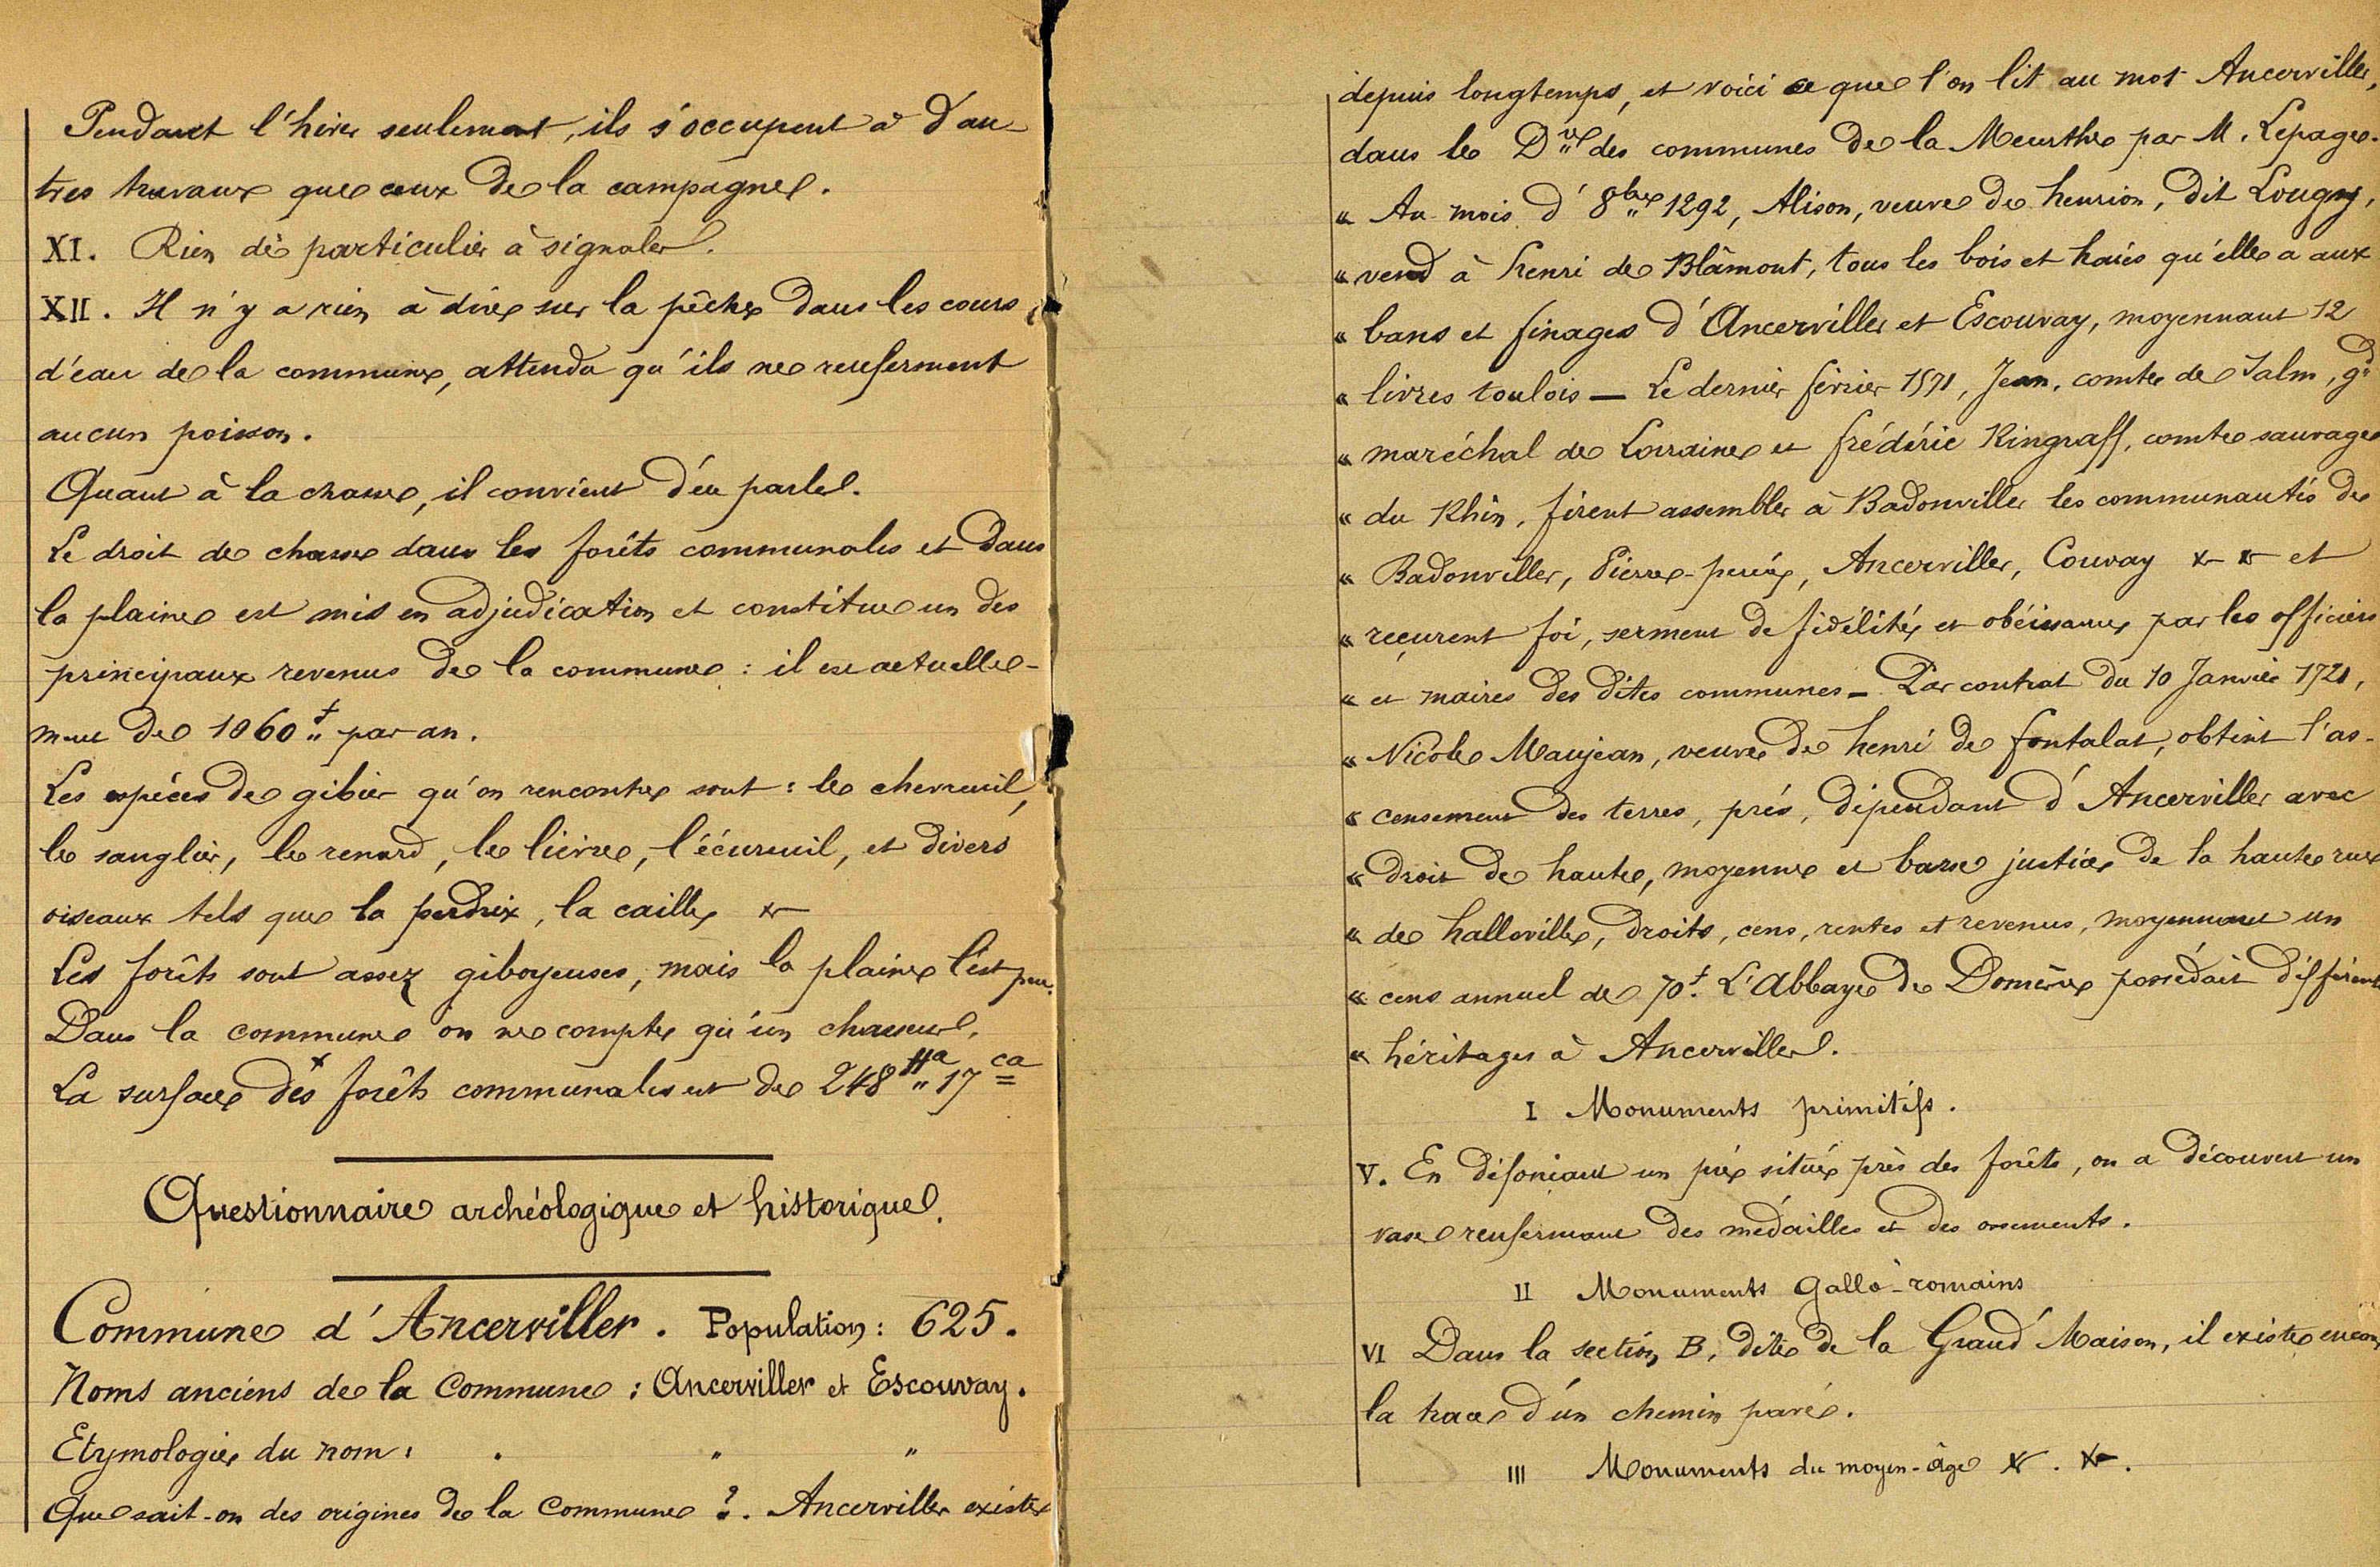 Pendant l'hiver seulement, ils s'occupent à d'au-
tres travaux que ceux de la campagne.
XI. Rien de particulier à signaler.
XII. Il n'y a rien à dire sur la pêche dans les cours
d'eau de la commune, attendu qu'ils ne renferment
aucun poisson.
Quant à la chasse, il convient d'en parler.
Le droit de chasse dans les forêts communales et dans
la plaine est mis en adjudication et constitue un des
principaux revenus de la commune : il est actuelle-
ment de 1060 f par an.
Les espèces de gibier qu'on rencontre sont : le chevreuil,
le sanglier, le renard, le lièvre, l'écureuil, et divers
oiseaux tels que la perdrix, la caille, &
Les forêts sont assez giboyeuses, mais la plaine l'est peu.
Dans la commune on ne compte qu'un chasseur.
La surface des forêts communales est de 248 Ha 17 ca
Questionnaire archéologique et historique.
Commune d'Ancerviller. Population : 625.
Noms anciens de la Commune : Ancerviller et Escouvay.
Etymologie du nom : " " "
Que sait-on des origines de la Commune ?. Ancerviller existe
depuis longtemps, et voici ce que l'on lit au mot Ancerviller,
dans le Dre des communes de la Meurthe par M. Lepage.
" Au mois d'8bre 1292, Alison, veuve de henrion, dit Lougny,
" vend à henri de Blâmont, tous les bois et haies qu'elle a aux
" bans et finages d'Ancerviller et Escouvay, moyennant 12
" livres toulois — Le dernier février 1571, Jean, comte de Salm, gd
" maréchal de Lorraine et frédéric Ringraff, comte sauvage
" du Rhin, firent assembler à Badonviller les communautés de
" Badonviller, Pierre-percée, Ancerviller, Couvay & & et
" reçurent foi, serment de fidélité, et obéissance par les officiers
" et maires des dites communes — Par contrat du 10 Janvier 1721,
" Nicole Maujean, veuve de henri de fontalat, obtint l'as-
" censement des terres, prés, dépendant d'Ancerviller avec
" droit de haute, moyenne et basse justice de la haute rue
" de halloville, droits, cens, rentes et revenus, moyennant un
" cens annuel de 70 f. L'Abbaye de Domèvre possédait différents
" héritages à Ancerviller.
I Monuments primitifs.
V. En défonçant un pré situé près des forêts, on a découvert un
vase renfermant des médailles et des ossements.
II Monuments Gallo-romains
VI Dans la section B, dite de la Grand'Maison, il existe encore
la trace d'un chemin pavé.
III Monuments du moyen-âge &. &.